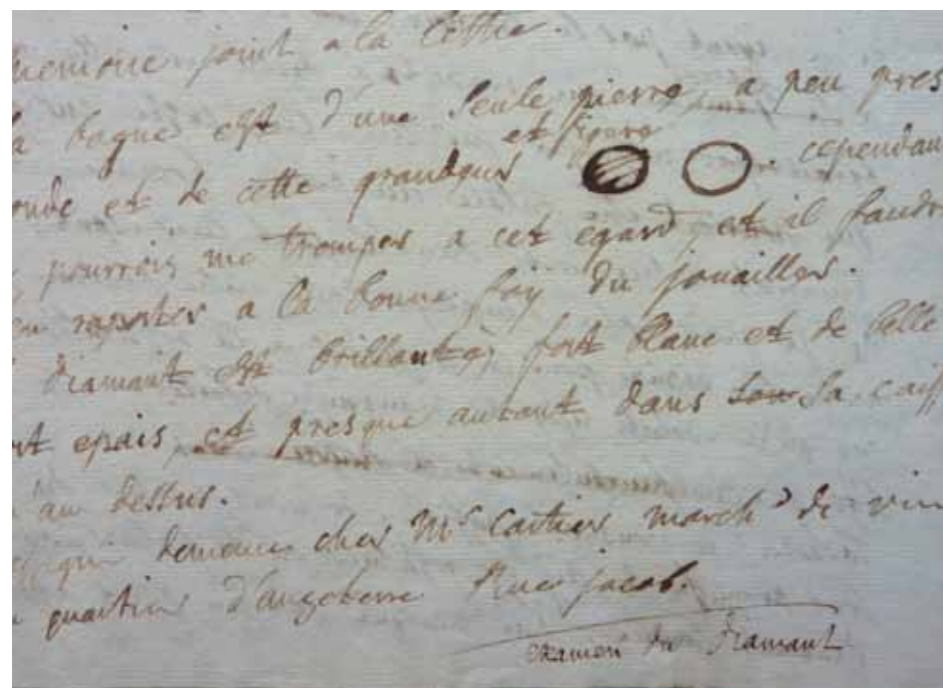 memoire joint a la lettre.
la bague est d'une seule pierre, a peu pres
et figure
onde et de cette grandeur cependan
pourrois me tromper a cet egard, et il faudr
en raporter a la bonne foy du jouailler.
diamant est brillanté, fort blanc et de belle
nt epais, et presque autant dans son sa caiss
au dessus.
qui demeure chez Mr Cartier march.d de vin
quartier d'angleterre Rue jacob.
examen du diamant